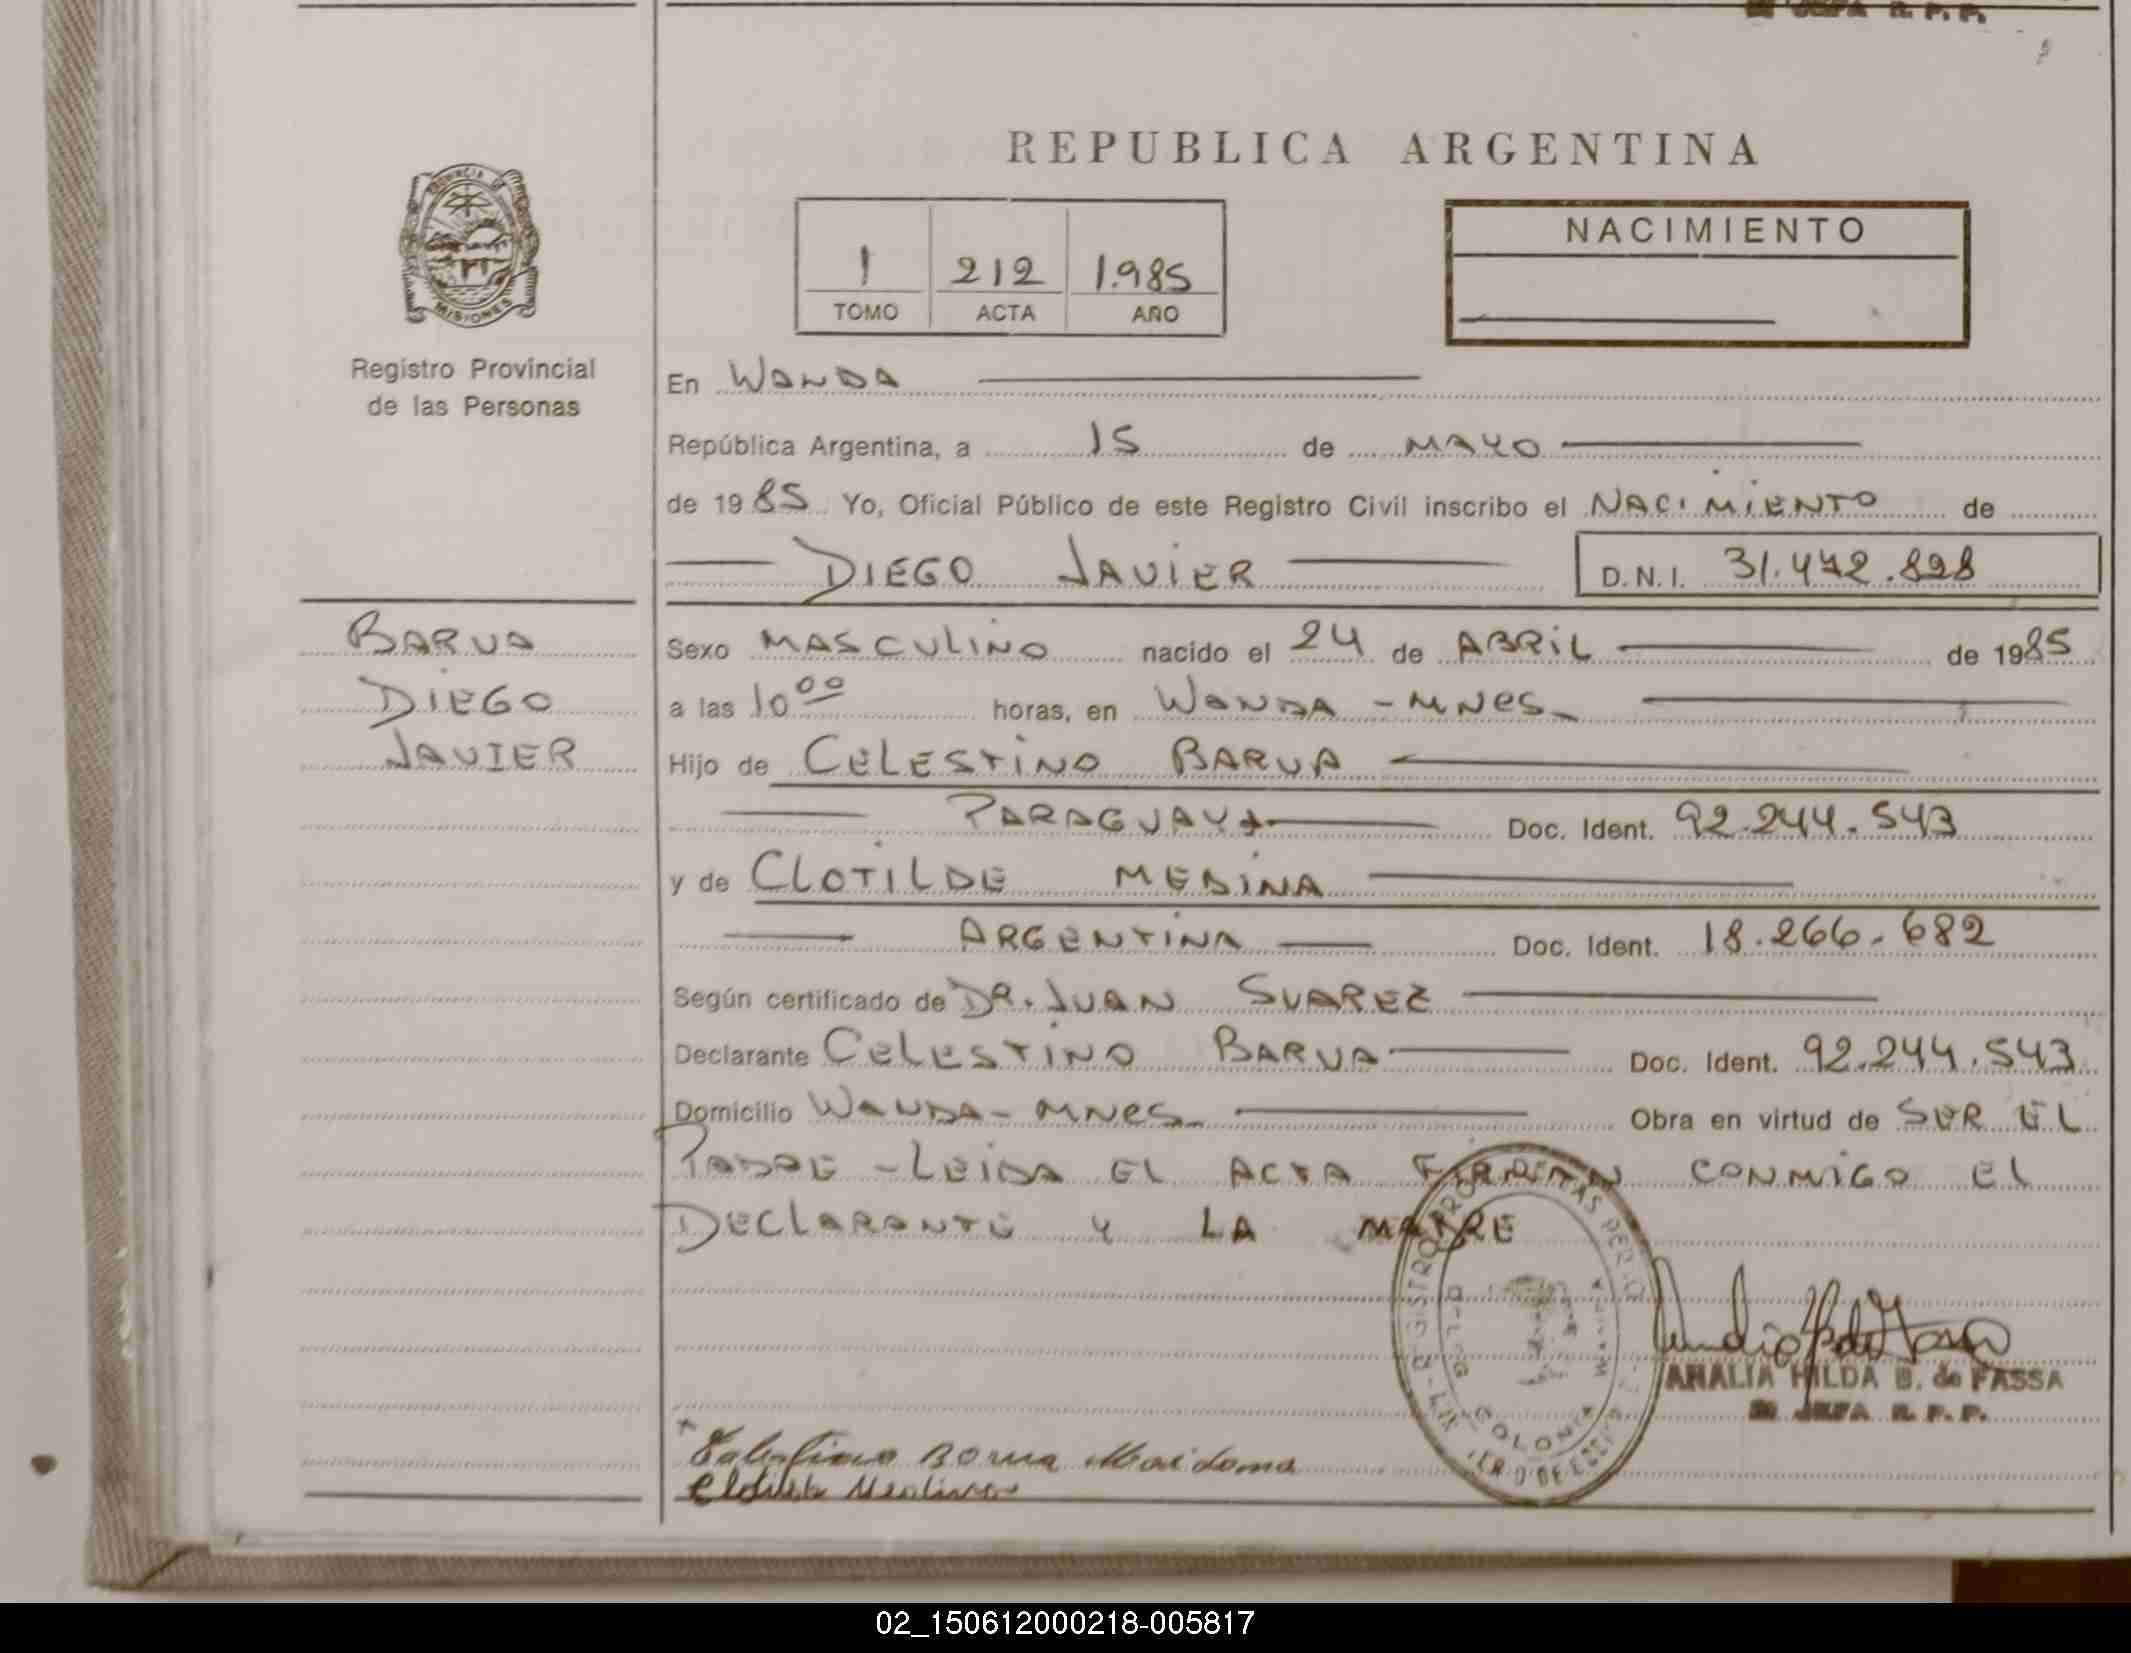 JEFA R. P. P.
REPUBLICA ARGENTINA
PROVINCIA DE
MISIONES
NACIMIENTO
1 212 1.985
TOMO ACTA AÑO
Registro Provincial
de las Personas
En WANDA
República Argentina, a 15 de MAYO
de 1985 Yo, Oficial Público de este Registro Civil inscribo el NACIMIENTO de
DIEGO JAVIER D.N.I. 31.472.898
BARUA
DIEGO
JAVIER
Sexo MASCULINO nacido el 24 de ABRIL de 1985
a las 10 00 horas, en WANDA - MNES
Hijo de CELESTINO BARUA
PARAGUAYA Doc. Ident. 92.244.543
y de CLOTILDE MEDINA
ARGENTINA Doc. Ident. 18.266.682
Según certificado de DR. JUAN SUAREZ
Declarante CELESTINO BARUA Doc. Ident. 92.244.543
Domicilio WANDA - MNES Obra en virtud de SER EL
PADRE - LEIDA EL ACTA FIRMAN CONMIGO EL
DECLARANTE Y LA MADRE
COLONIA
WANDA
ANALIA HILDA B. de FASSA
JEFA R. P. P.
Celestino Barua
Clotilde Medina
02_150612000218-005817